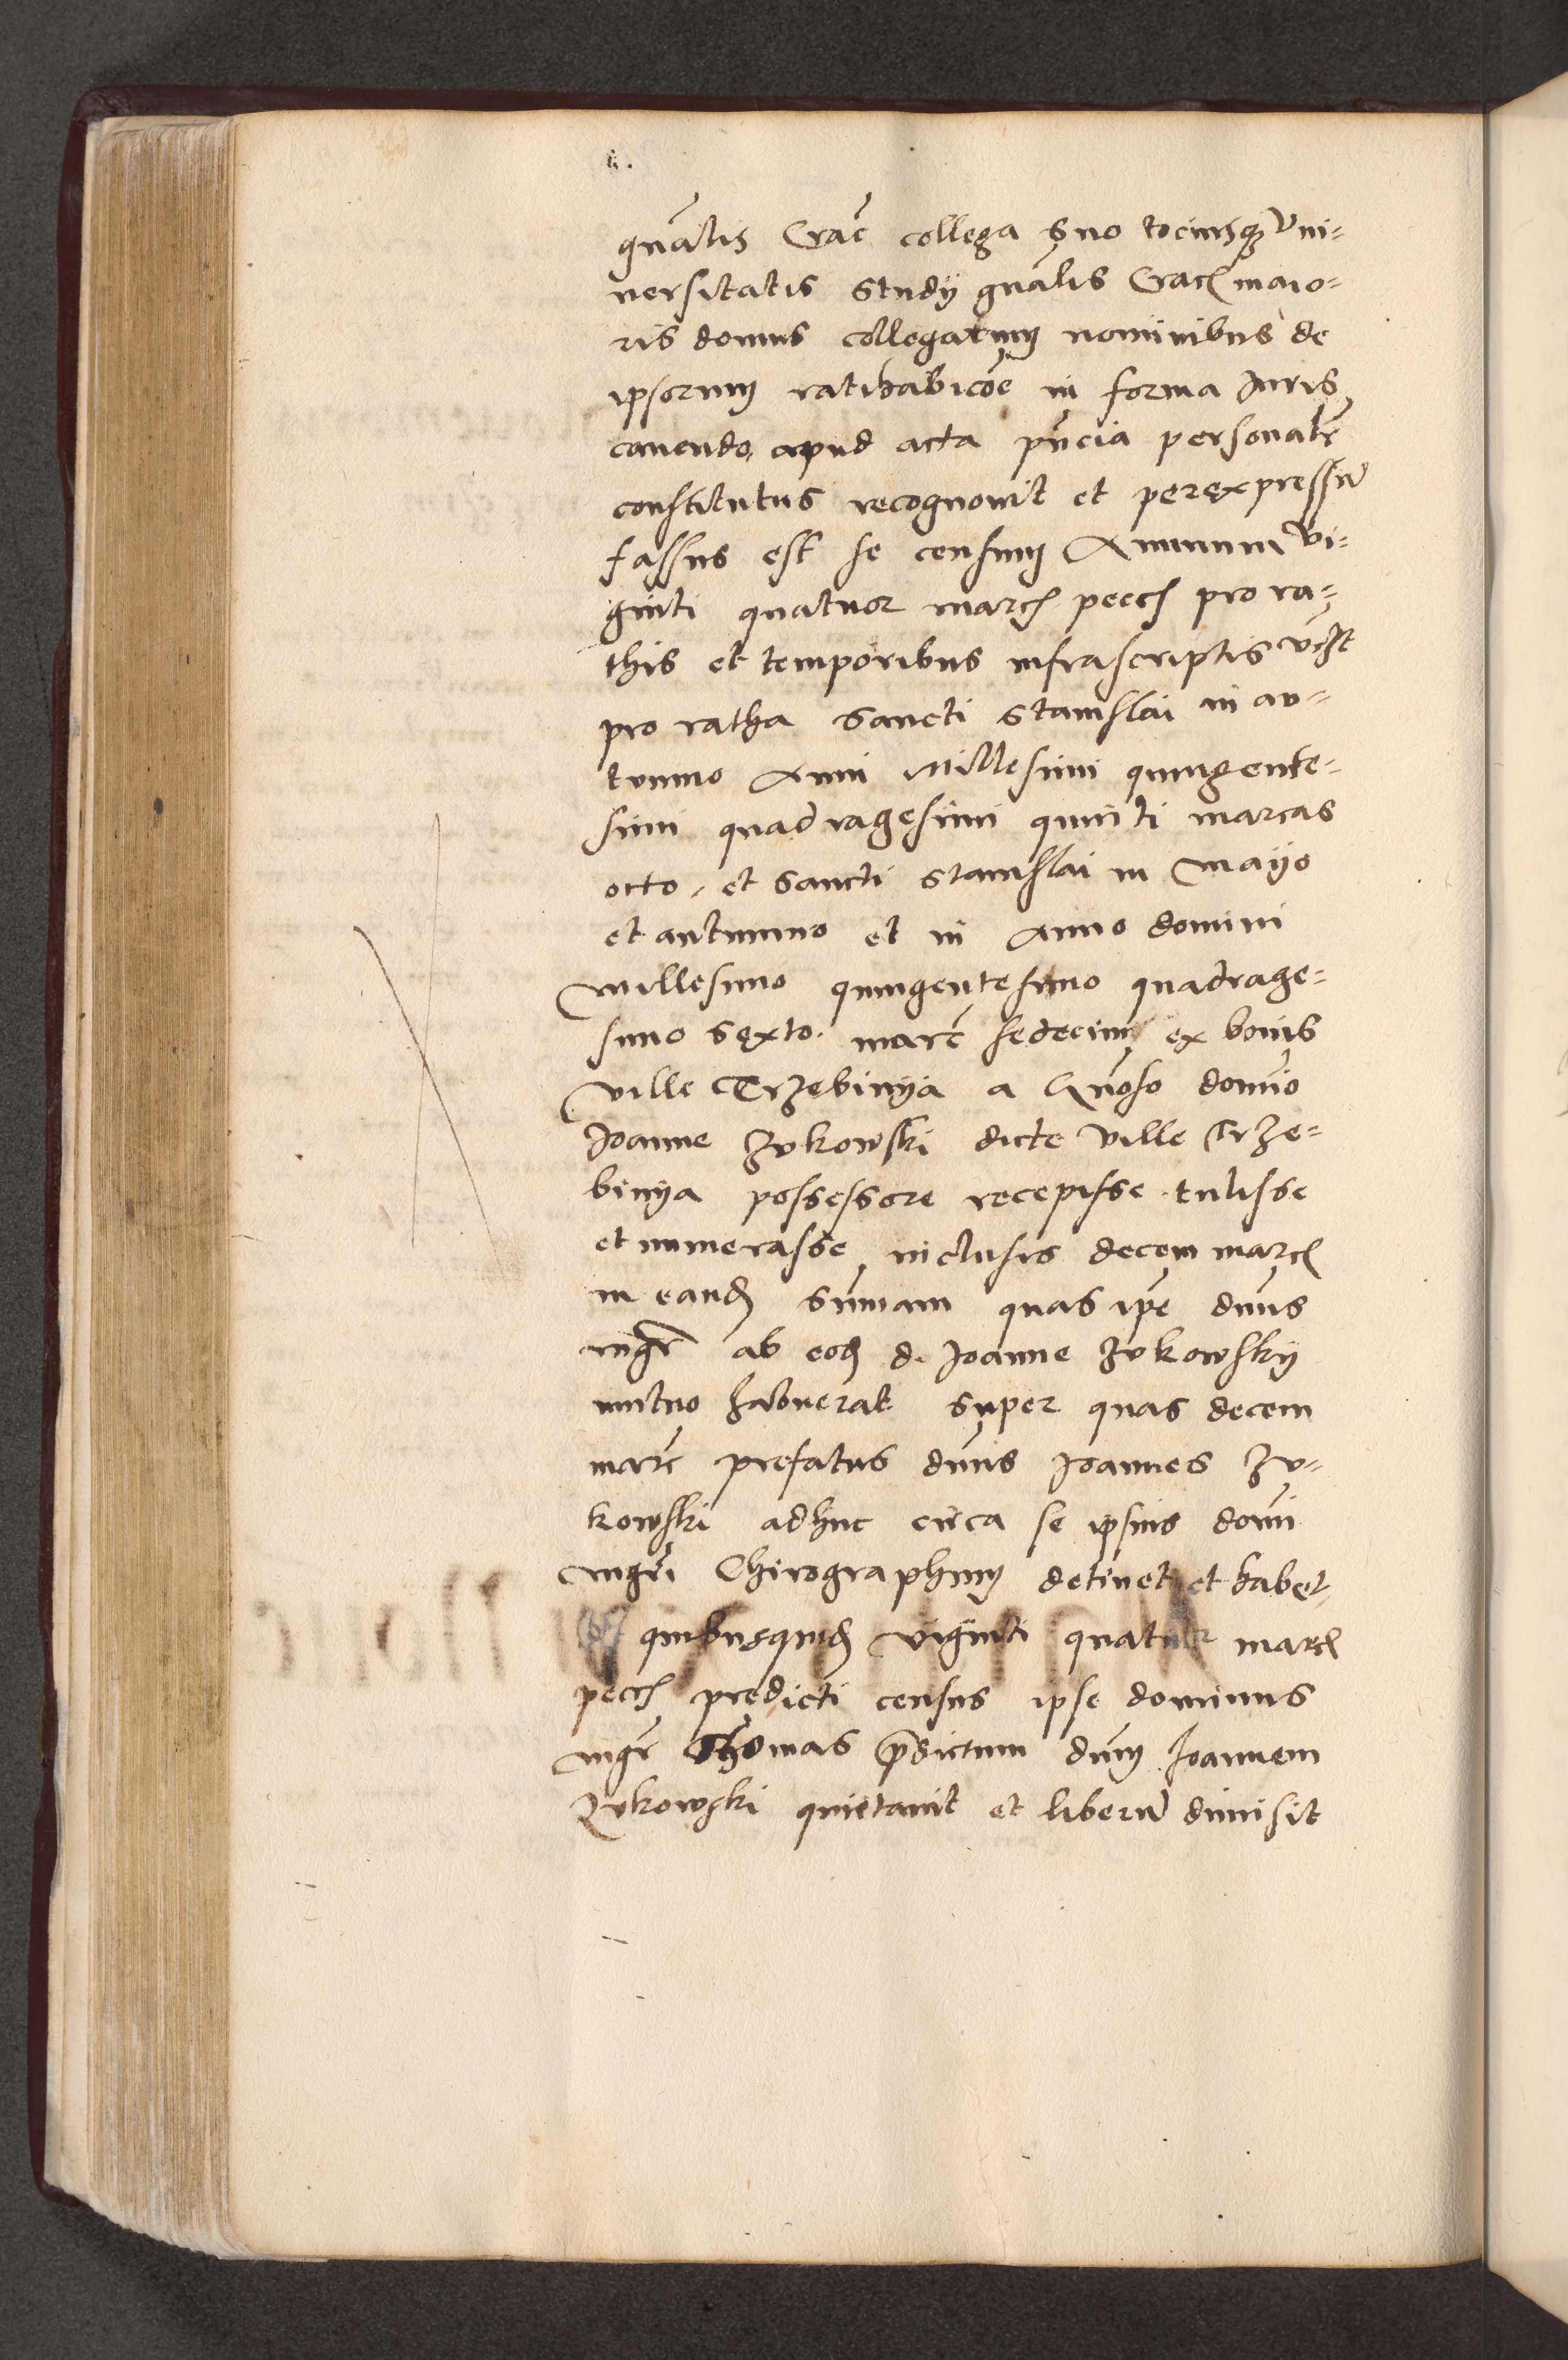 gnalis Crac collega suo tociusq Vni-
uersitatis Studÿ gnalis Crac maio-
ris domus collegarum nominibus de
ipsorum ratihabicoe in forma Iuris
cauendo, apud acta pncia personalr
constitutus recognouit et per expressum
fassus est se censum Annuum vi-
ginti quatuor marc pecc pro ra-
this et temporibus infrascriptis vczt
pro ratha Sancti Stanislai in au-
tumno Anni Millesimi quingente-
simi quadragesimi quinti marcas
octo, et Sancti Stanislai in Mayo
et autumno et in Anno domini
Millesimo quingentesimo quadrage-
simo Sexto. marc sedecim ex bonis
Ville Trzebinya a Gnoso domino
Joanne Zukowski dicte Ville Trze-
binya possessore recepisse tulisse
et numerasse, inclusis decem marc
in eand summam quas ipe dnus
mgr ab eod d. Joanne Zukowskÿ
mutuo habuerat super quas decem
marc prefatus dnus Joannes Zu-
kowski adhuc circa se ipsius domi
mgri Chirographum detinet et habet
quibusquid Viginti quatuor marc
pecc predicti census ipse dominus
mgr Thomas pdictum dnum Joannem
Zukowski quietauit et liberum dimisit